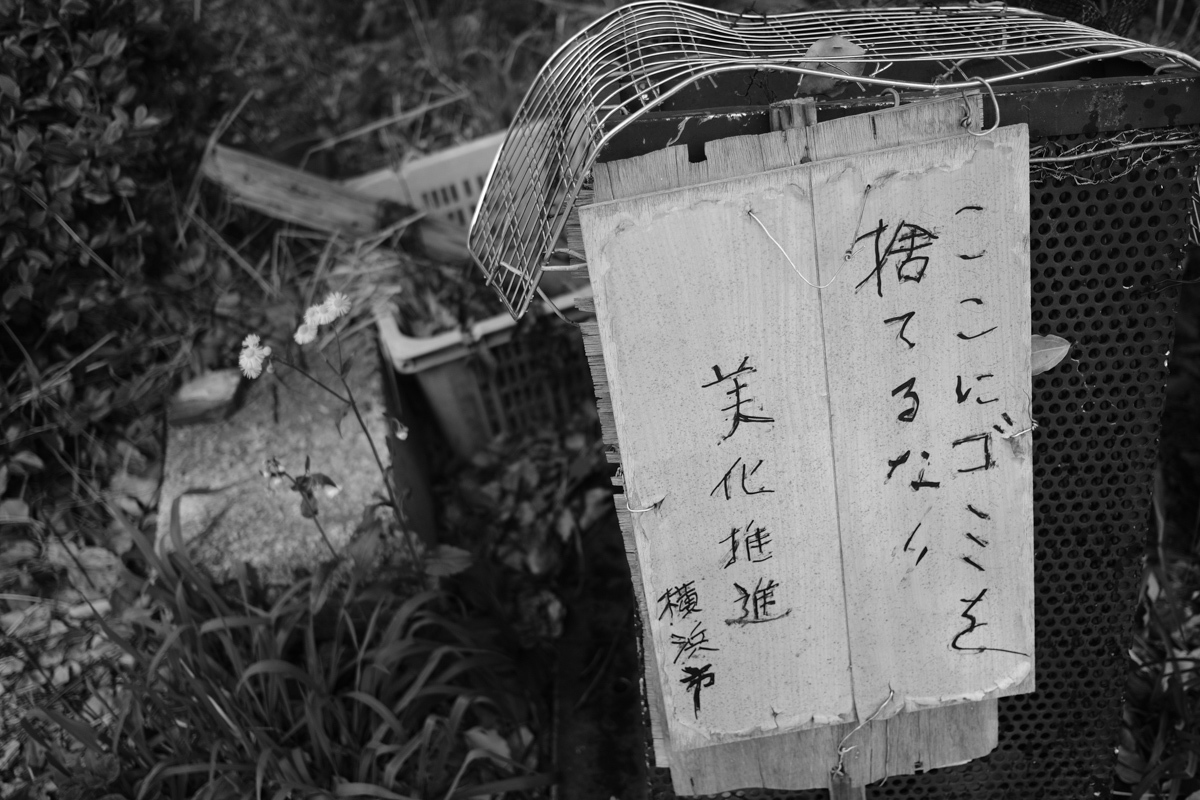 ここにゴミを
捨てるな!!
美化推進
横浜市